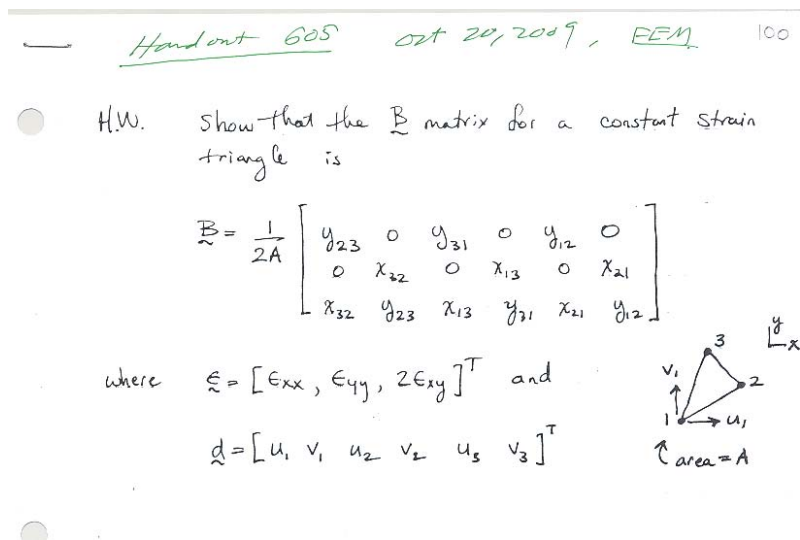 Handout 605 Oct 20, 2009, FEM 100
H.W. Show that the B matrix for a constant strain
triangle is
B = 1/2A [ y23 0 y31 0 y12 0
0 x32 0 x13 0 x21
x32 y23 x13 y31 x21 y12 ]
where ε = [εxx, εyy, 2εxy]ᵀ and
d = [u1 v1 u2 v2 u3 v3]ᵀ
y
x
3
v1
2
1
u1
area = A